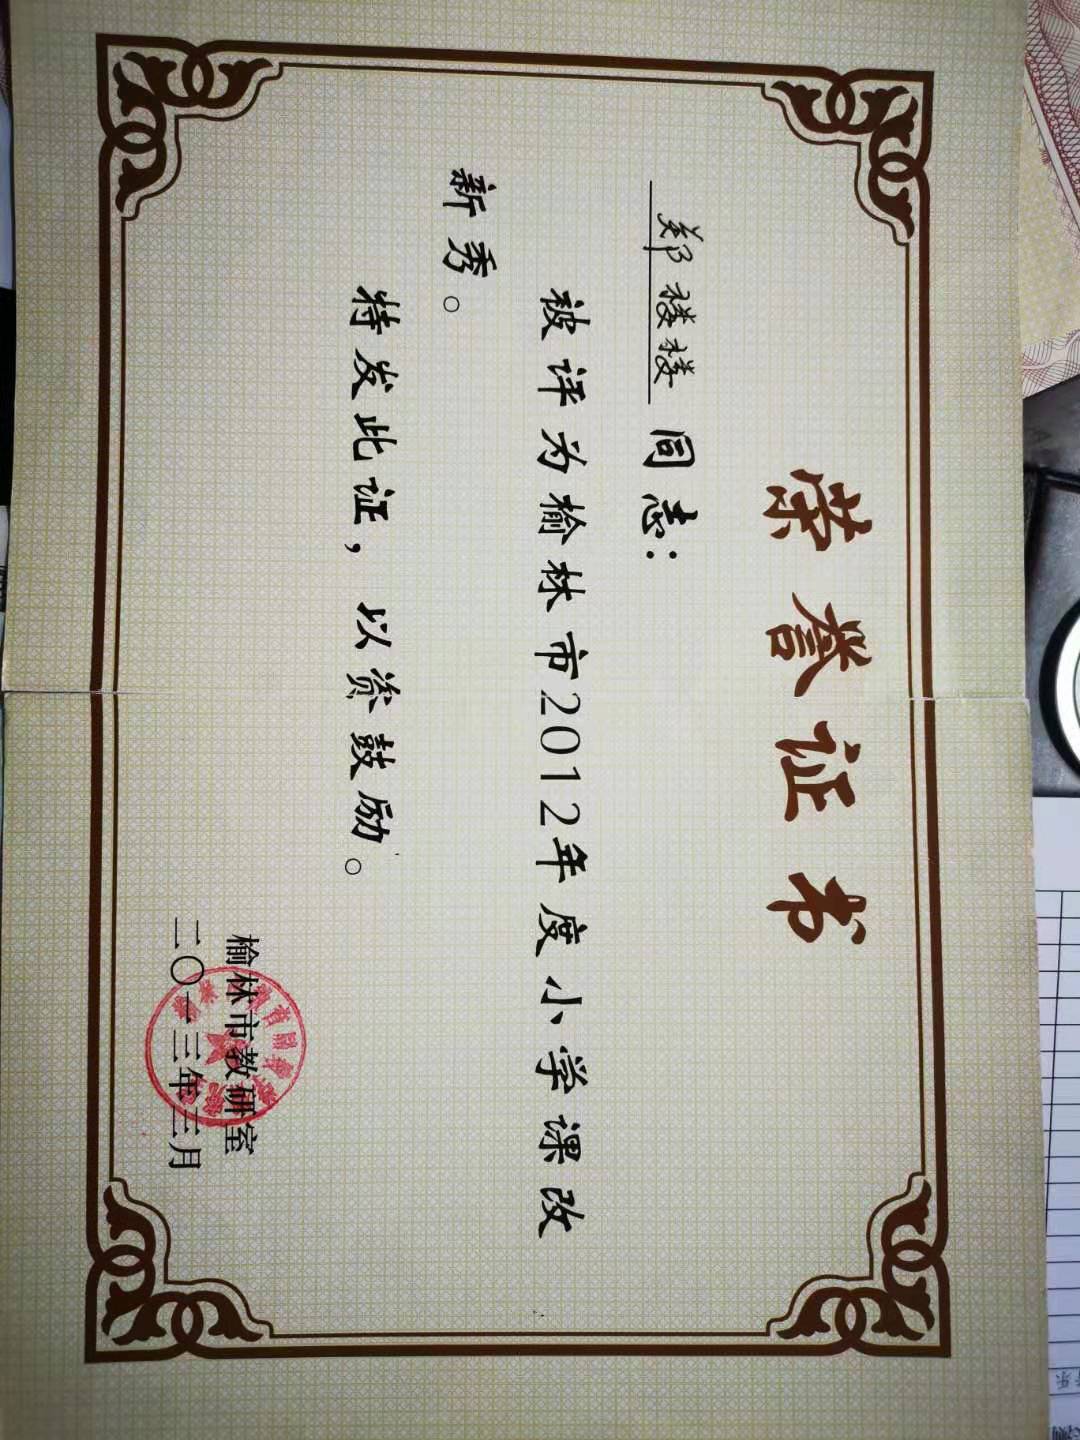 荣誉证书
郑楼楼同志：
被评为榆林市2012年度小学课改
新秀。
特发此证，以资鼓励。
榆林市教研室
二〇一三年三月